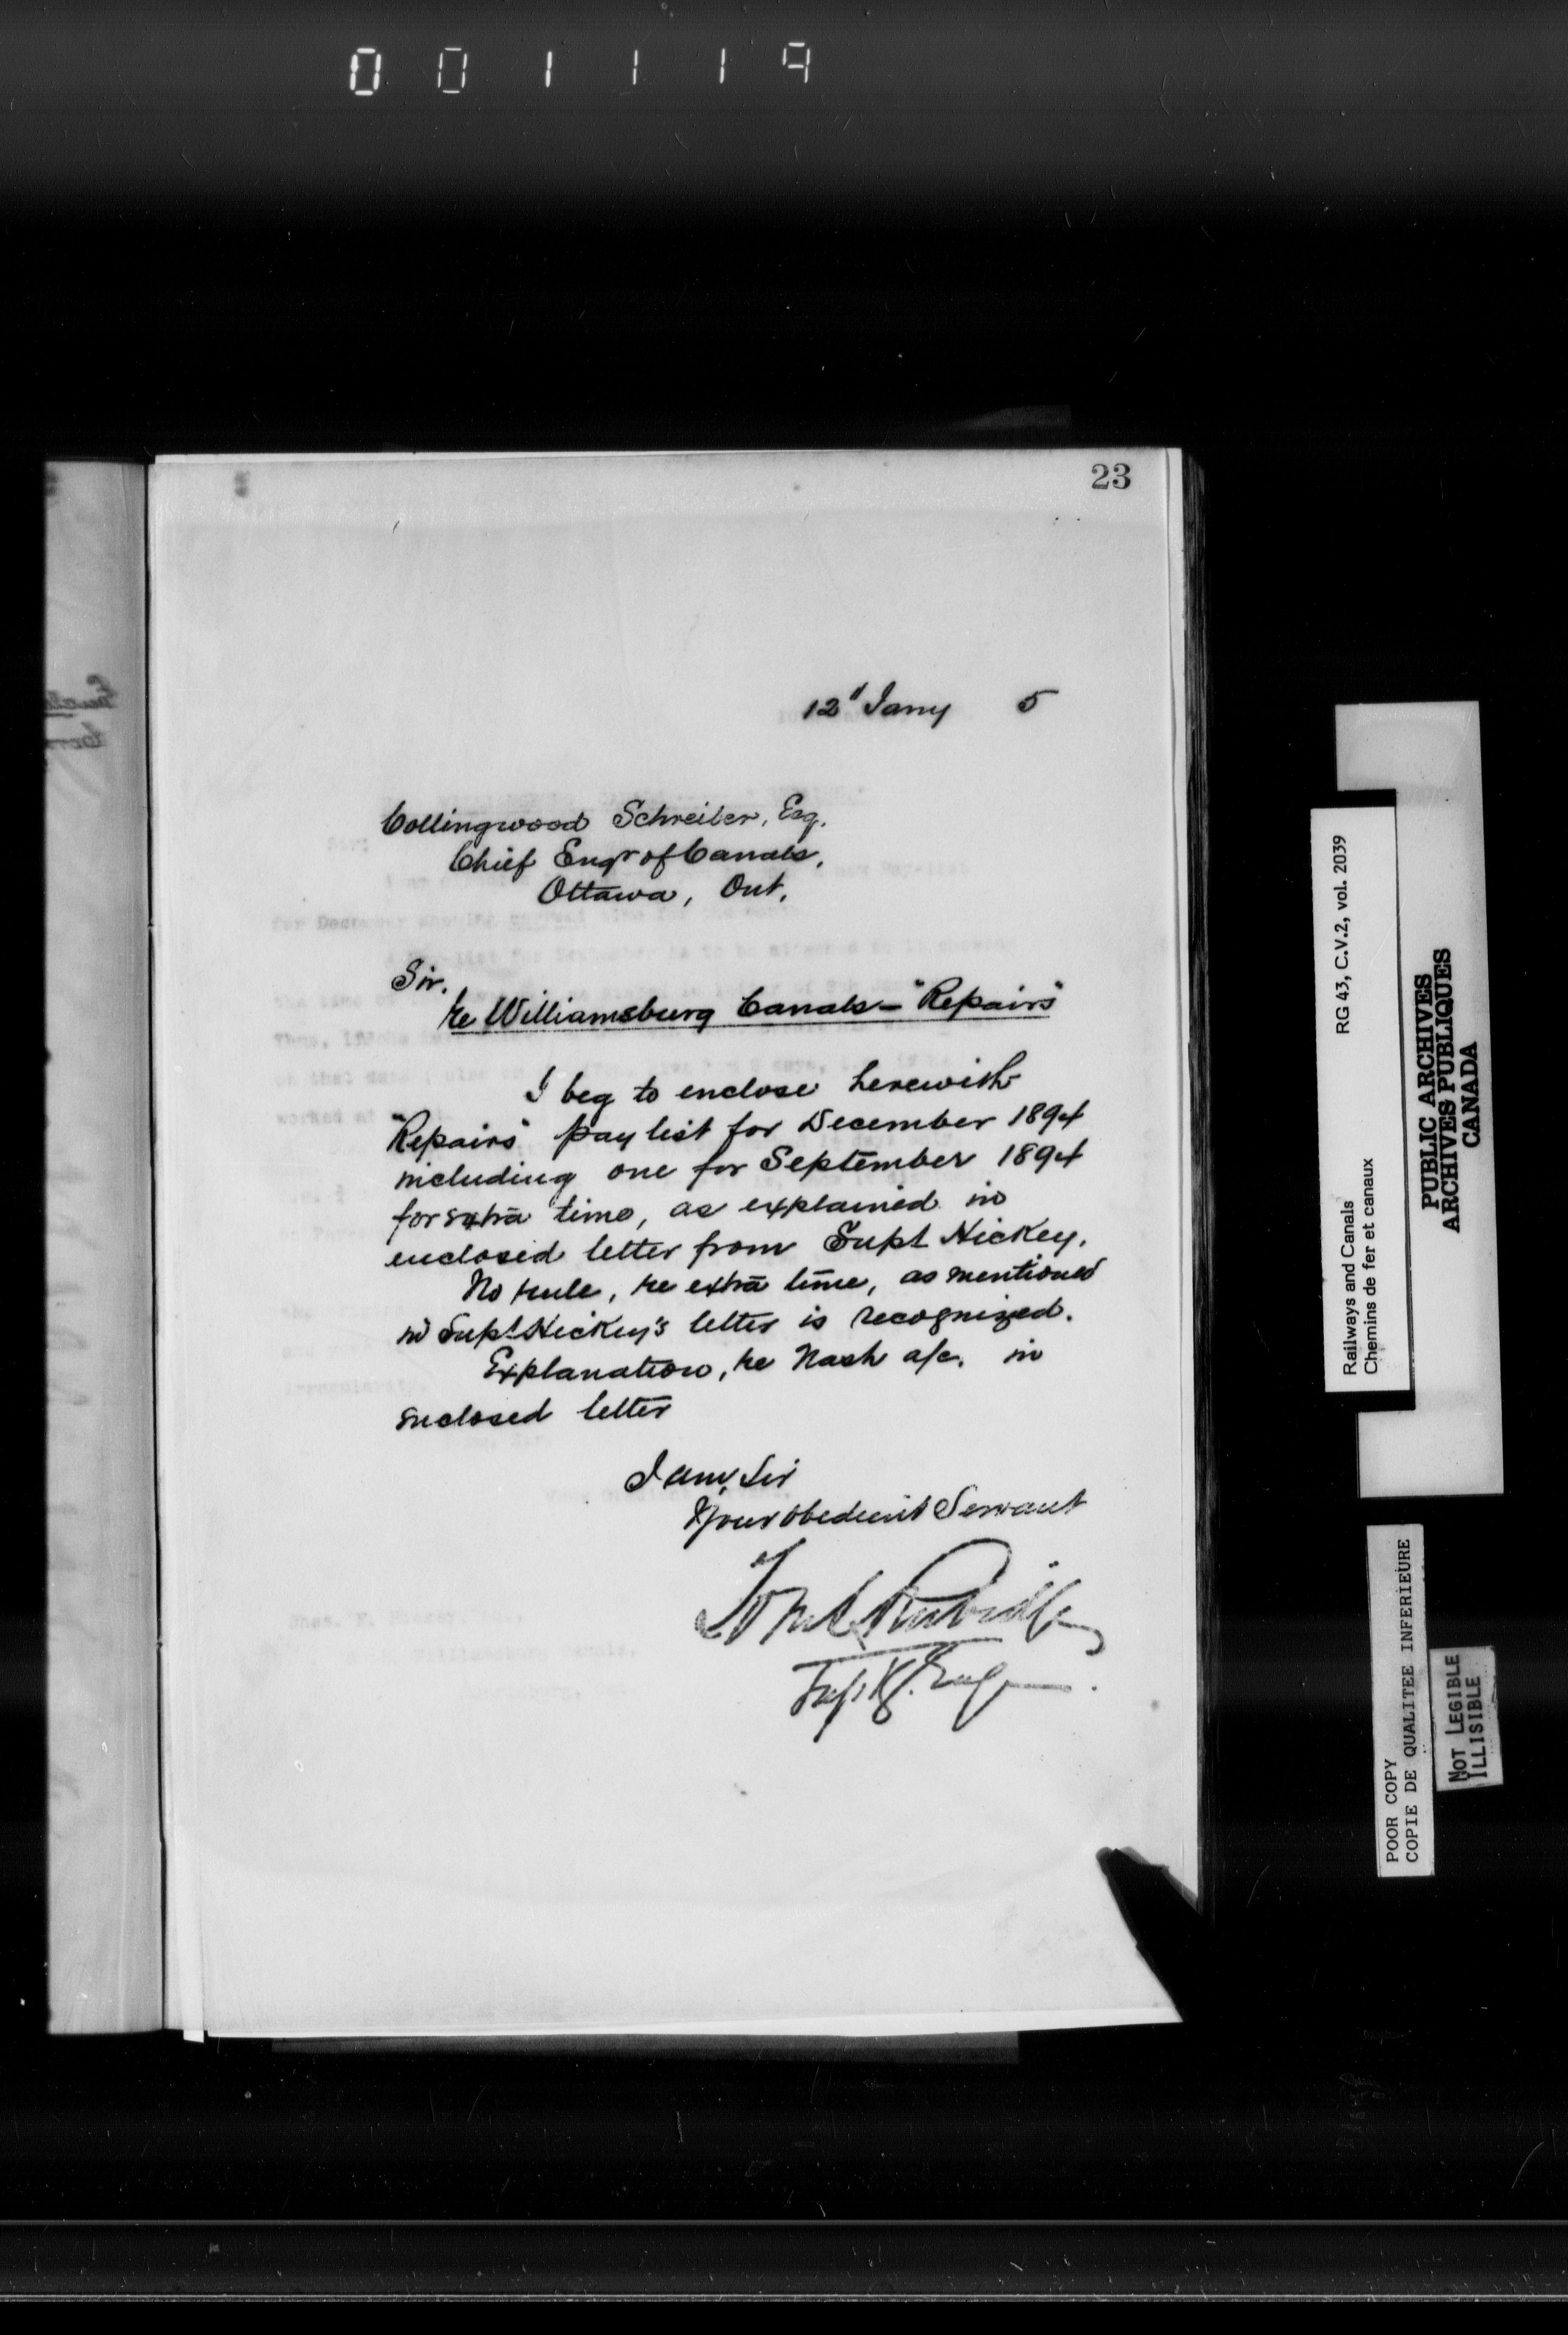 001119
23
12" Jany 5
Collingwood Schreiber, Esq.
Chief Engr of Canals,
Ottawa, Ont.
Sir.
re Williamsburg Canals - "Repairs"
I beg to enclose herewith
"Repairs" pay list for December 1894
including one for September 1894
for extra time, as explained in
enclosed letter from Supt Hickey.
No rule, re extra time, as mentioned
in Supt Hickey's letter is recognized.
Explanation, re Nash a/c. in
enclosed letter
I am, Sir
Your obedient Servant
Rubidge
Supt Eng
RG 43, C.V.2, vol. 2039
Railways and Canals
Chemins de fer et canaux
PUBLIC ARCHIVES
ARCHIVES PUBLIQUES
CANADA
POOR COPY
COPIE DE QUALITEE INFERIEURE
NOT LEGIBLE
ILLISIBLE